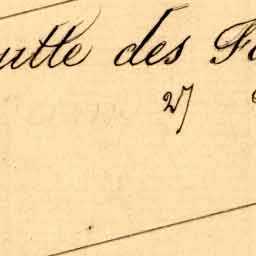 utte des Fo
27